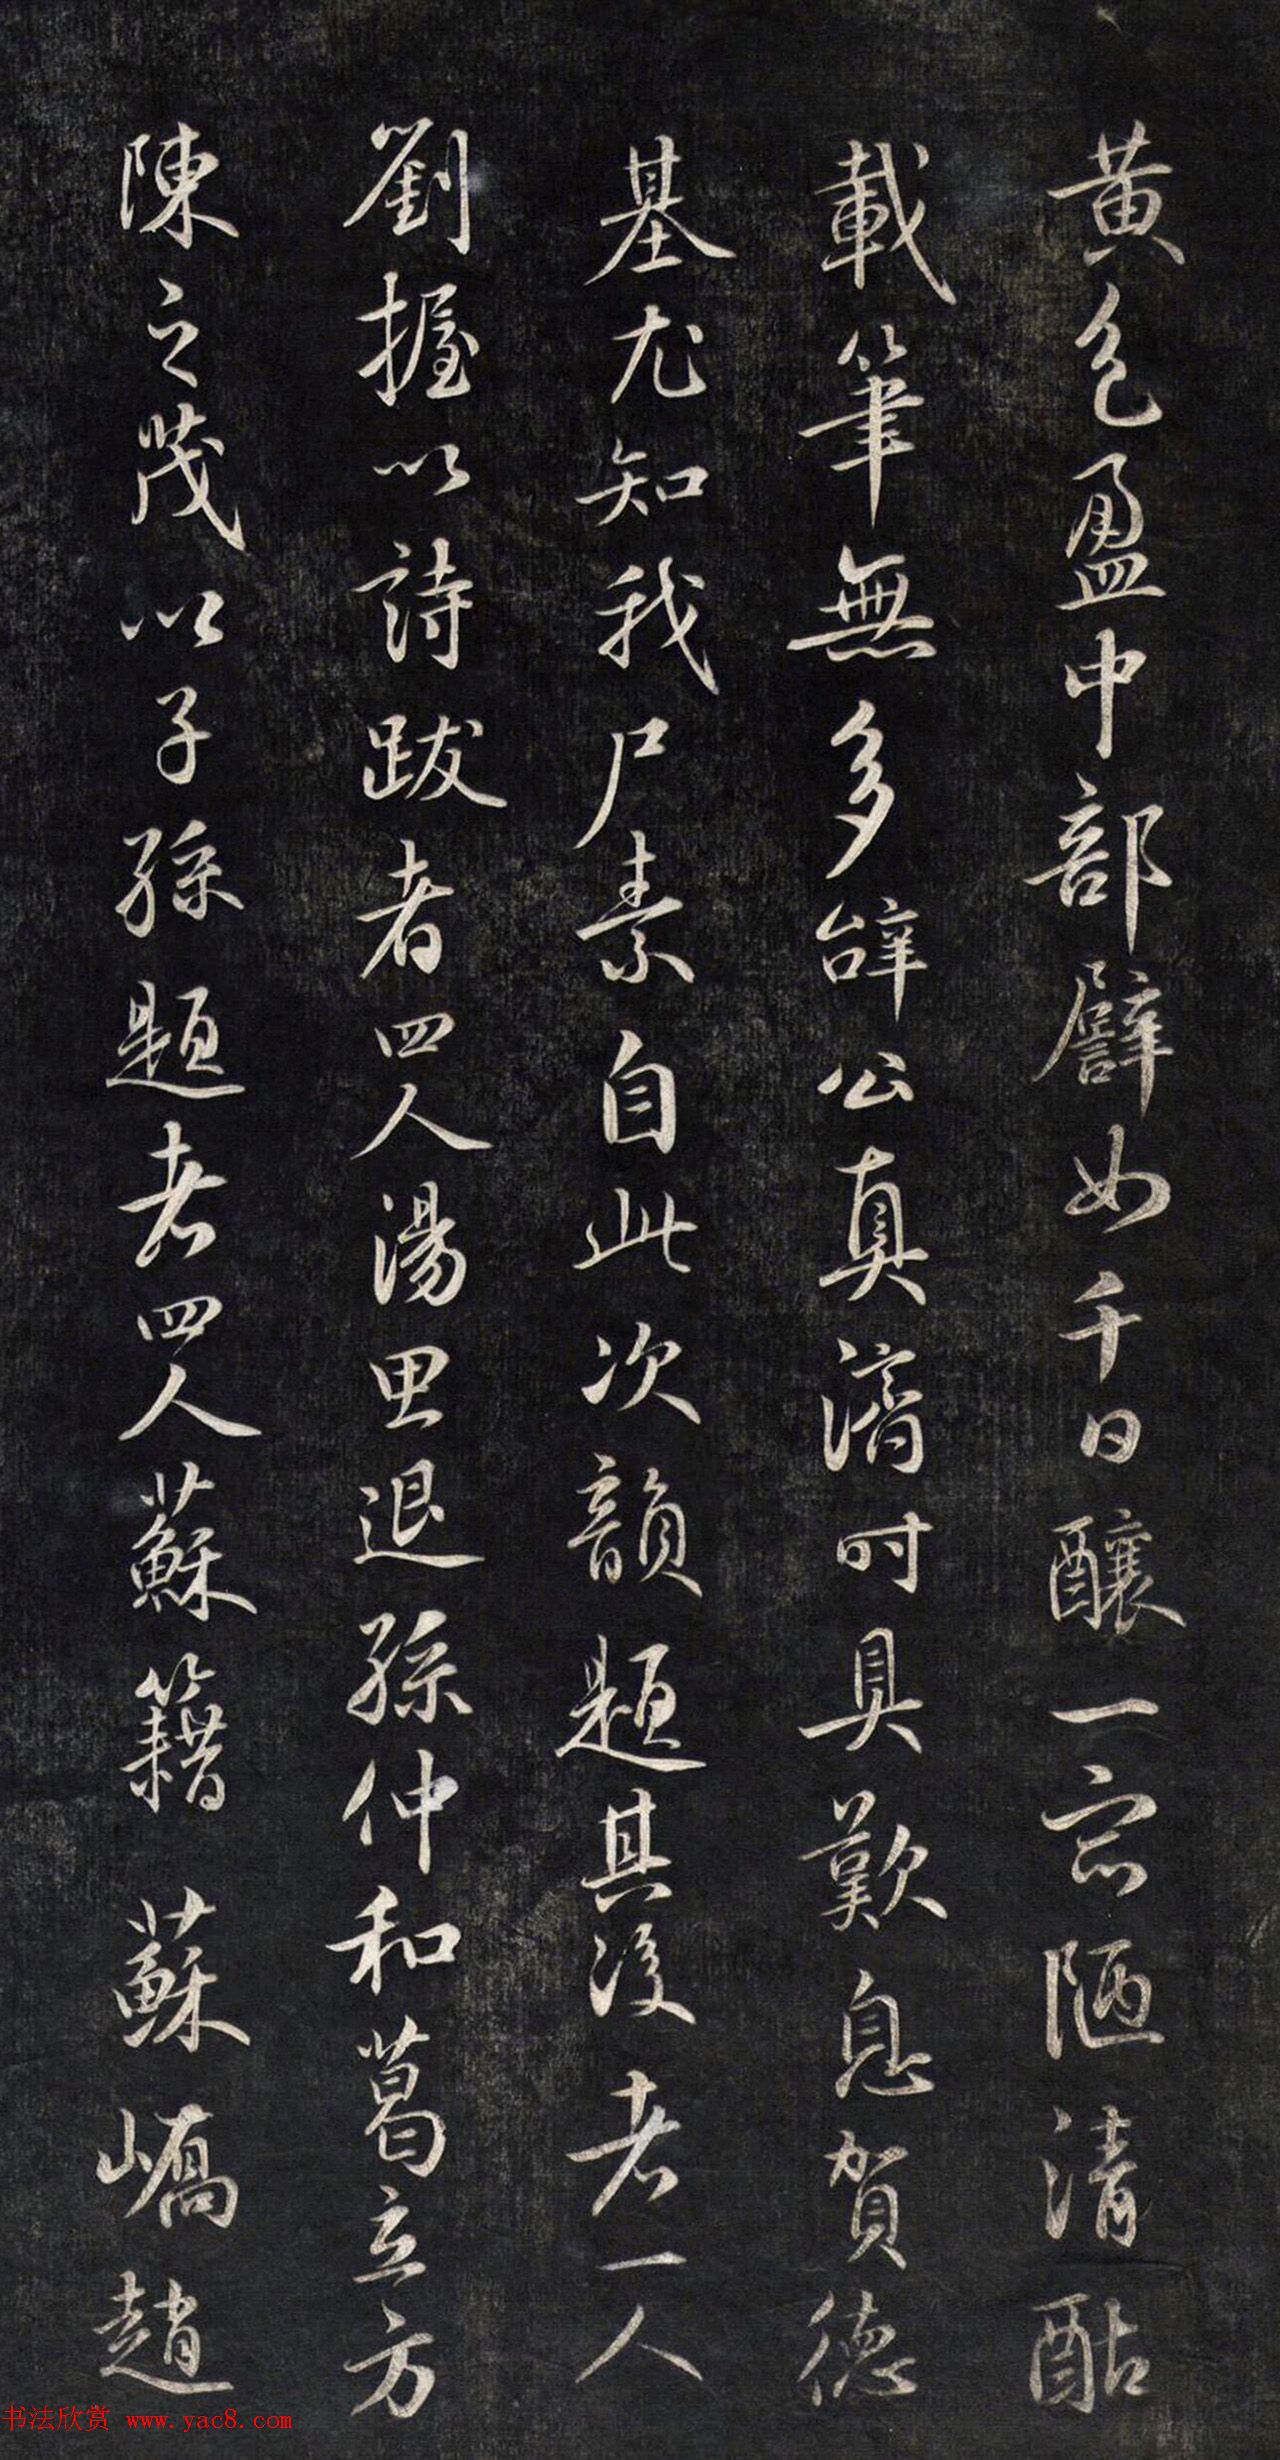 黄色盈中部譬如千日釀一宗陋清酤
載筆無多辭公真濟時具歎息賀德
基尤知我尸素自此次韻題其後者一人
劉握以詩跋者四人湯思退孫仲和葛立方
陳之茂以子孫題者四人蘇籍蘇嶠趙
书法欣赏 www.yac8.com